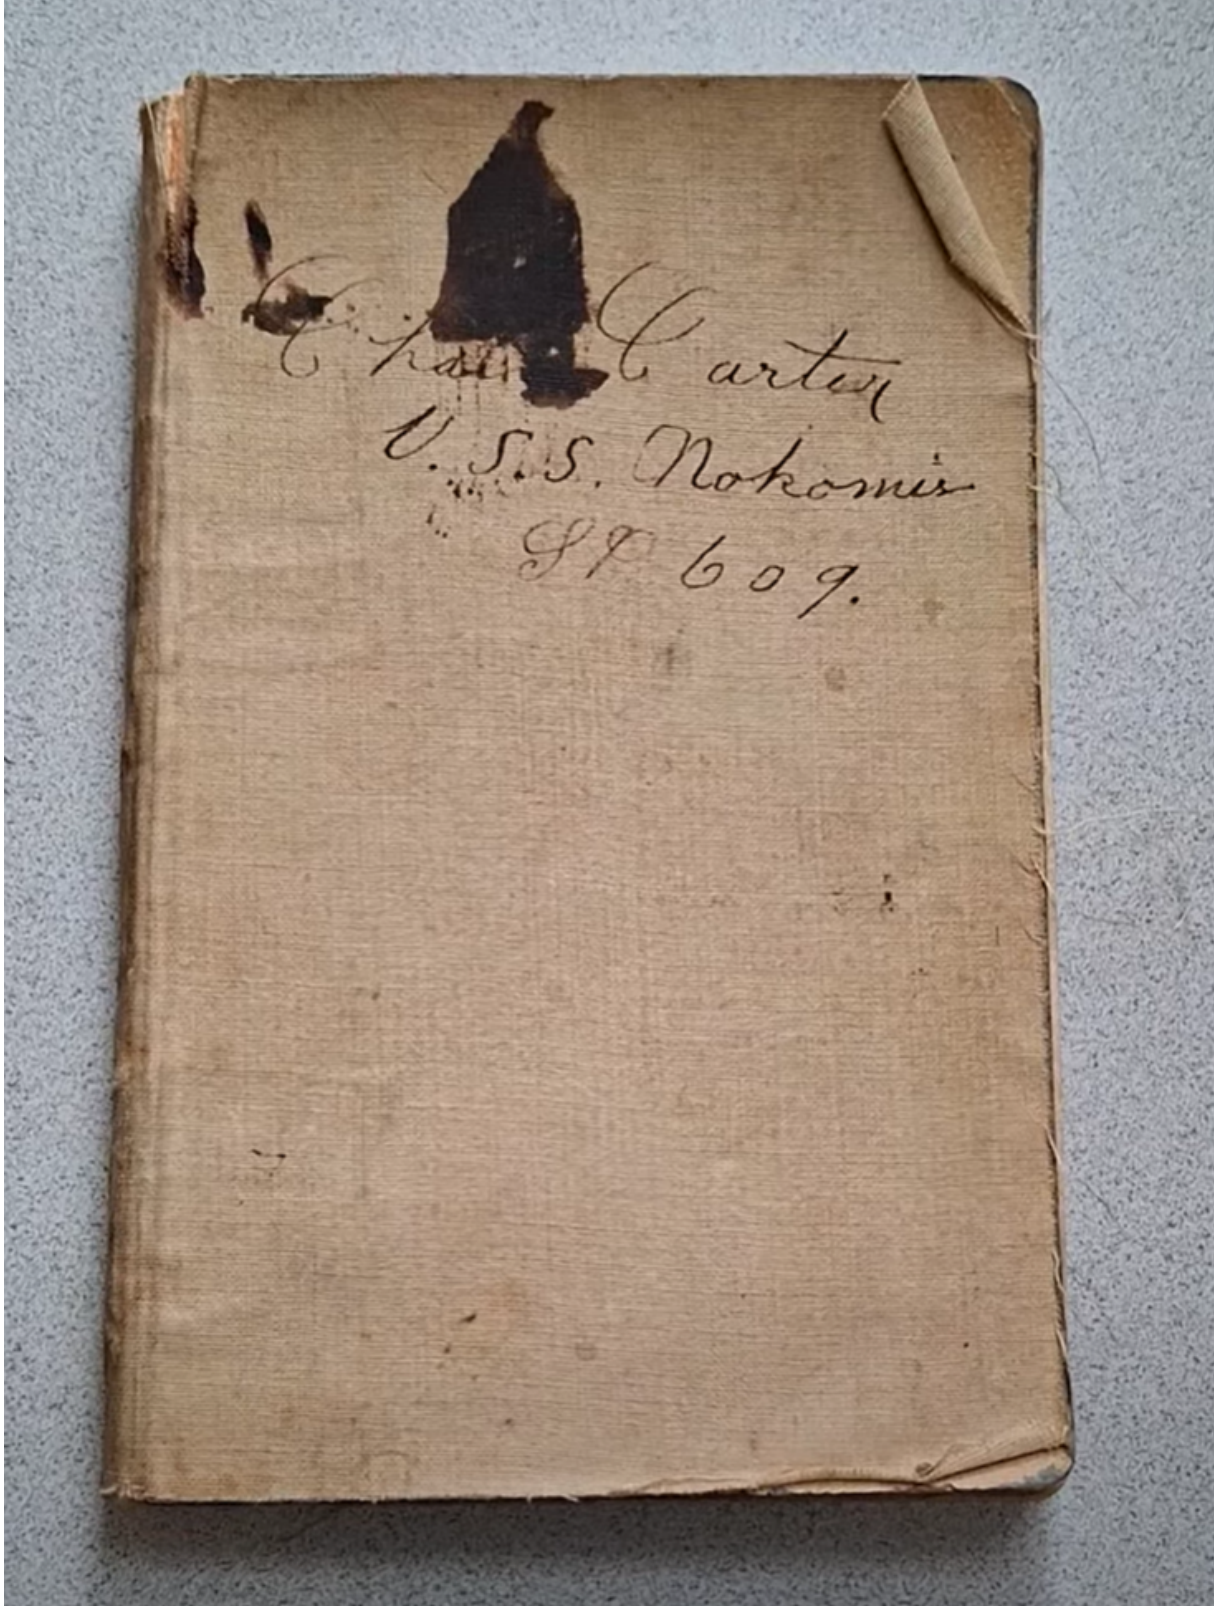 Carter
U. S. S. Nokomis
SP 609.